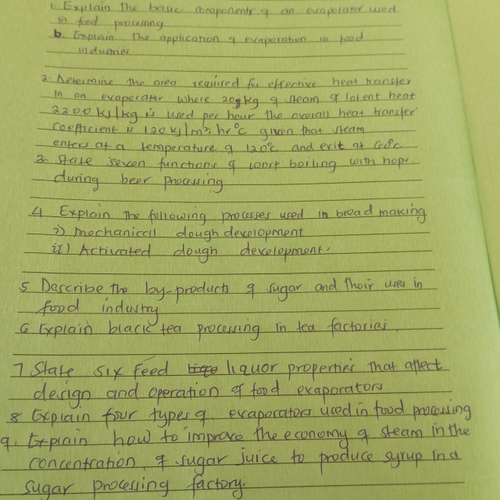 1. Explain the basic components of an evaporator used
in food processing
b. Explain the application of evaporation in food
industries
2. Determine the area required for effective heat transfer
in an evaporator where kg of steam of latent heat
2200 kJ/kg is used per hour the overall heat transfer
coefficient is 120 kJ/m² hr °C given that steam
enters at a temperature of 120°C and exit at 60°C
3. State seven functions of wort boiling with hops
during beer processing
4 Explain the following processes used in bread making
i) mechanical dough development
ii) Activated dough development.
5 Describe the by-products of sugar and their uses in
food industry
6 Explain black tea processing in tea factories.
7 State six feed liquor properties that affect
design and operation of food evaporators
8 Explain four types of evaporators used in food processing
9. Explain how to improve the economy of steam in the
concentration of sugar juice to produce syrup in a
sugar processing factory.